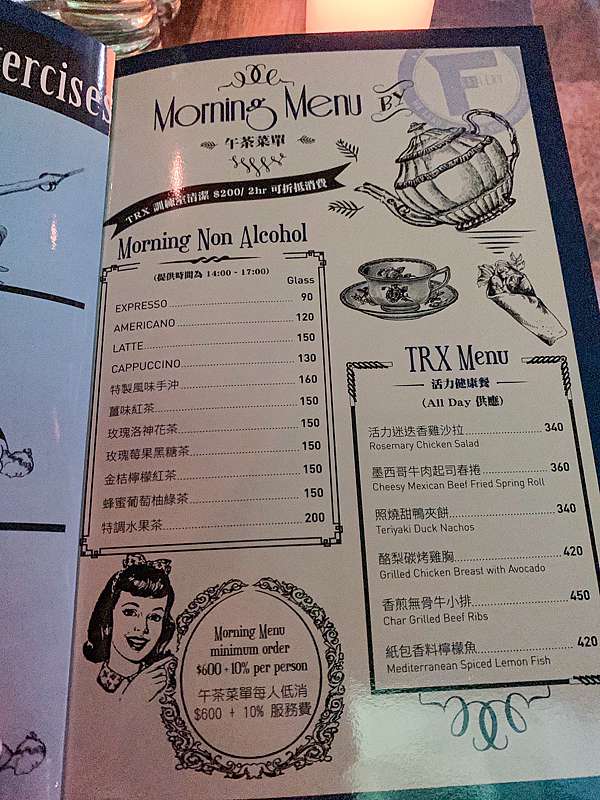 ercises
Morning Menu BY
午茶菜單
TRX 訓練室清潔 $200/ 2hr 可折抵消費
Morning Non Alcohol
(提供時間為 14:00 - 17:00)
Glass
EXPRESSO 90
AMERICANO 120
LATTE 150
CAPPUCCINO 130
特製風味手沖 160
薑味紅茶 150
玫瑰洛神花茶 150
玫瑰莓果黑糖茶 150
金桔檸檬紅茶 150
蜂蜜葡萄柚綠茶 150
特調水果茶 200
TRX Menu
活力健康餐
(All Day 供應)
活力迷迭香雞沙拉 340
Rosemary Chicken Salad
墨西哥牛肉起司春捲 360
Cheesy Mexican Beef Fried Spring Roll
照燒甜鴨夾餅 340
Teriyaki Duck Nachos
酪梨碳烤雞胸 420
Grilled Chicken Breast with Avocado
香煎無骨牛小排 450
Char Grilled Beef Ribs
紙包香料檸檬魚 420
Mediterranean Spiced Lemon Fish
Morning Menu
minimum order
$600 +10% per person
午茶菜單每人低消
$600 + 10% 服務費